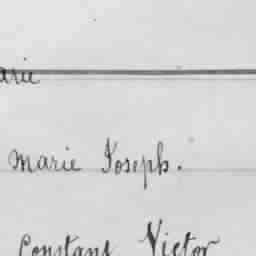 arie
Marie Joseph.
Constant Victor